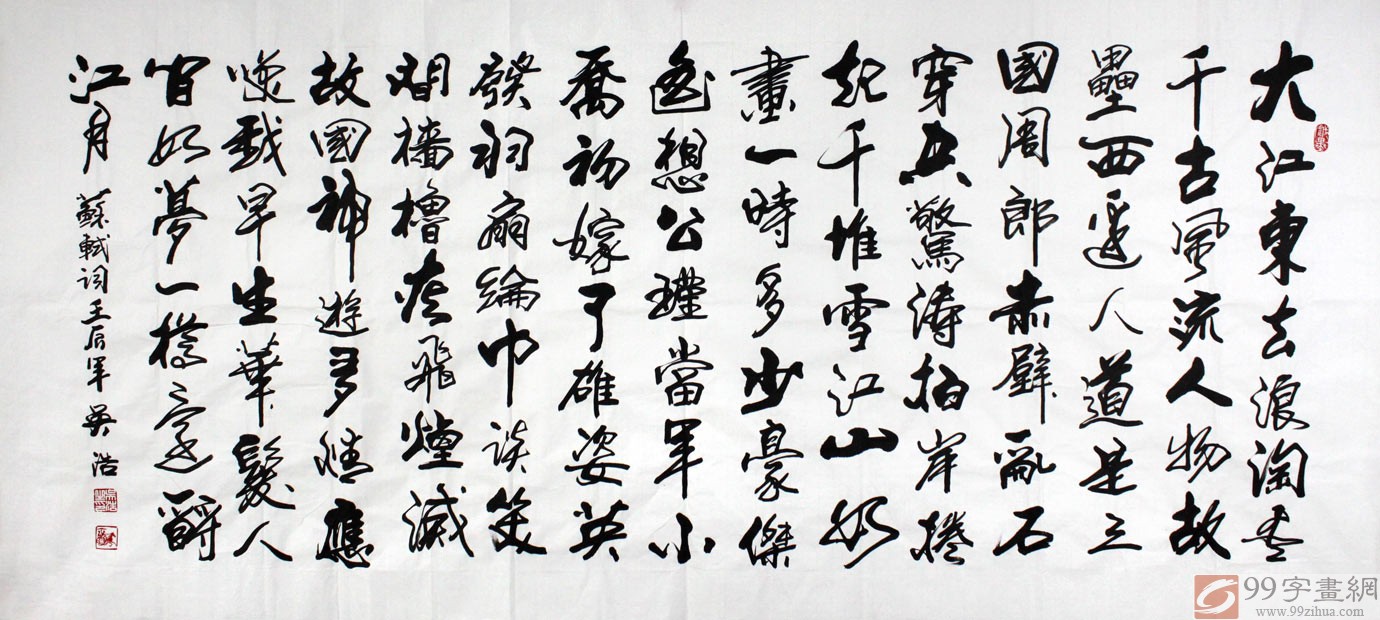 大江東去浪淘盡
千古風流人物故
壘西邊人道是三
國周郎赤壁亂石
穿空驚濤拍岸捲
起千堆雪江山如
畫一時多少豪傑
遙想公瑾當年小
喬初嫁了雄姿英
發羽扇綸巾談笑
間檣櫓灰飛煙滅
故國神遊多情應
笑我早生華髮人
間如夢一樽還酹
江月
蘇軾词壬辰年吴浩
99字畫網
www.99zihua.com